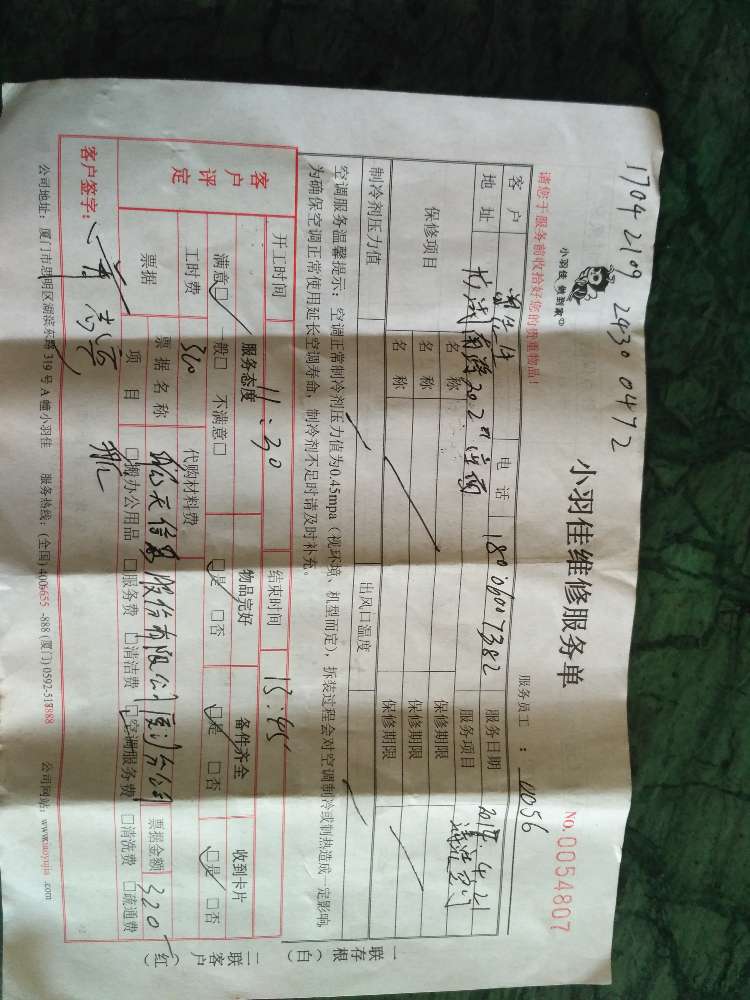 1704 2109 2430 0472
小羽佳 做到家
小羽佳维修服务单
No. 0054807
请您于服务前收拾好您的贵重物品!
服务员工: 11056
客户 电话 18060007382 服务日期
地址 服务项目
保修项目 名称 保修期限
名称 保修期限
名称 保修期限
制冷剂压力值 出风口温度
空调服务温馨提示:空调正常制冷剂压力值为0.45mpa(视环境、机型而定),拆装过程会对空调制冷或制热造成一定影响,
为确保空调正常使用延长空调寿命,制冷剂不足时请及时补充。
一联存根(白)
二联客户(红)
开工时间 11:30 结束时间 13:45
客户评定
服务态度 物品完好 备件齐全 收到卡片
满意□ 一般□ 不满意□ □是 □否 □是 □否 □是 □否
工时费 320 代购材料费
票据 票据名称 股份有限公司厦门分公司 票据金额 320
项目 □办公用品 □服务费 □清洁费 □空调服务费 □清洗费 □疏通费
客户签字:
公司地址:厦门市思明区湖滨东路319号A幢小羽佳 服务热线:(全国)4006655-888 (厦门)0592-518888 公司网站:www.xiaoyujia.com